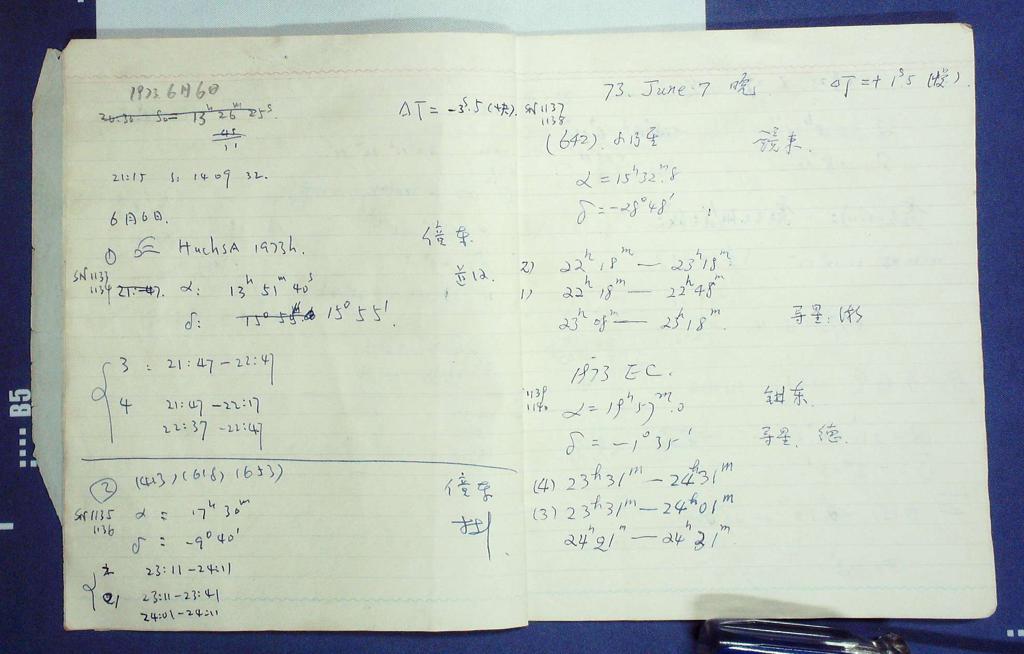 1973 6月6日
20:30 S₀= 13ʰ 26ᵐ 25ˢ
45
ΔT = -3ˢ.5 (快).
21:15 S: 14 09 32.
6月6日.
① HuchsA 1973h.
SN1133
1134
21:47. α: 13ʰ 51ᵐ 40ˢ
δ: 15° 55'.
3 : 21:47-22:47
4 21:47-22:17
22:37-22:47
② (413), (618), (653)
SN1135
1136
α = 17ʰ 30ᵐ
δ : -9° 40'
23:11-24:11
23:11-23:41
24:01-24:11
73. June. 7 晚 ΔT=+1ˢ5 (慢).
SN1137
1138
(642).
α = 15ʰ 32ᵐ.8
δ = -28° 48'
2) 22ʰ 18ᵐ — 23ʰ 18ᵐ
1) 22ʰ 18ᵐ — 22ʰ 48ᵐ
23ʰ 08ᵐ — 23ʰ 18ᵐ
导星:
1973 EC.
1139
1140
α = 19ʰ 57ᵐ.0
δ = -1° 35'
导星. 德.
(4) 23ʰ 31ᵐ — 24ʰ 31ᵐ
(3) 23ʰ 31ᵐ — 24ʰ 01ᵐ
24ʰ 21ᵐ — 24ʰ 31ᵐ
B5